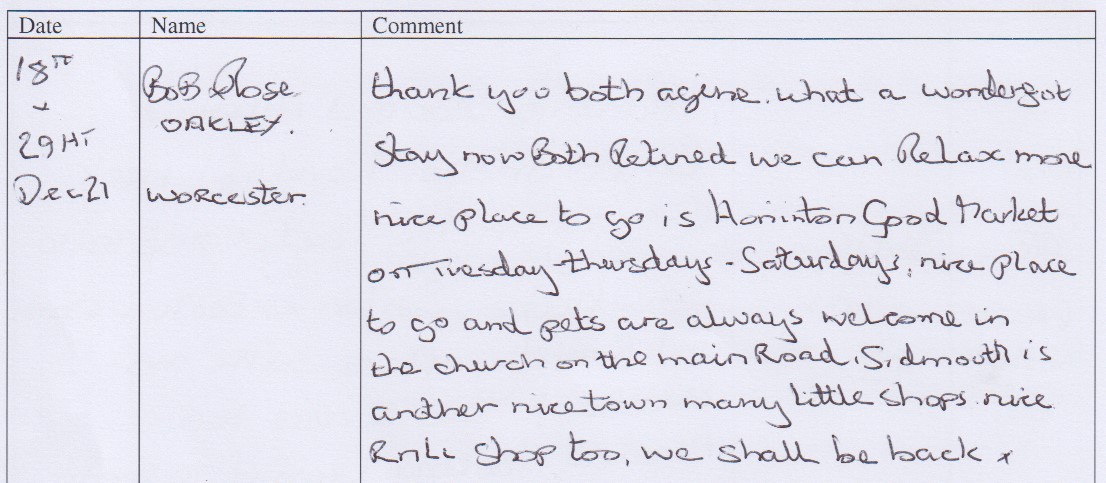 Date Name Comment
18TH
-
29HT
Dec 21
BoB & Rose
OAKLEY.
WORCESTER.
thank you both agine. what a wonderfot
Stay now Both Retired we can Relax more
nice place to go is Honinton Good Market
on Tuesday - thursdays - Saturdays, nice place
to go and pets are always welcome in
the church on the main Road. Sidmouth is
another nice town many little shops nice
RNLi shop too, we shall be back x